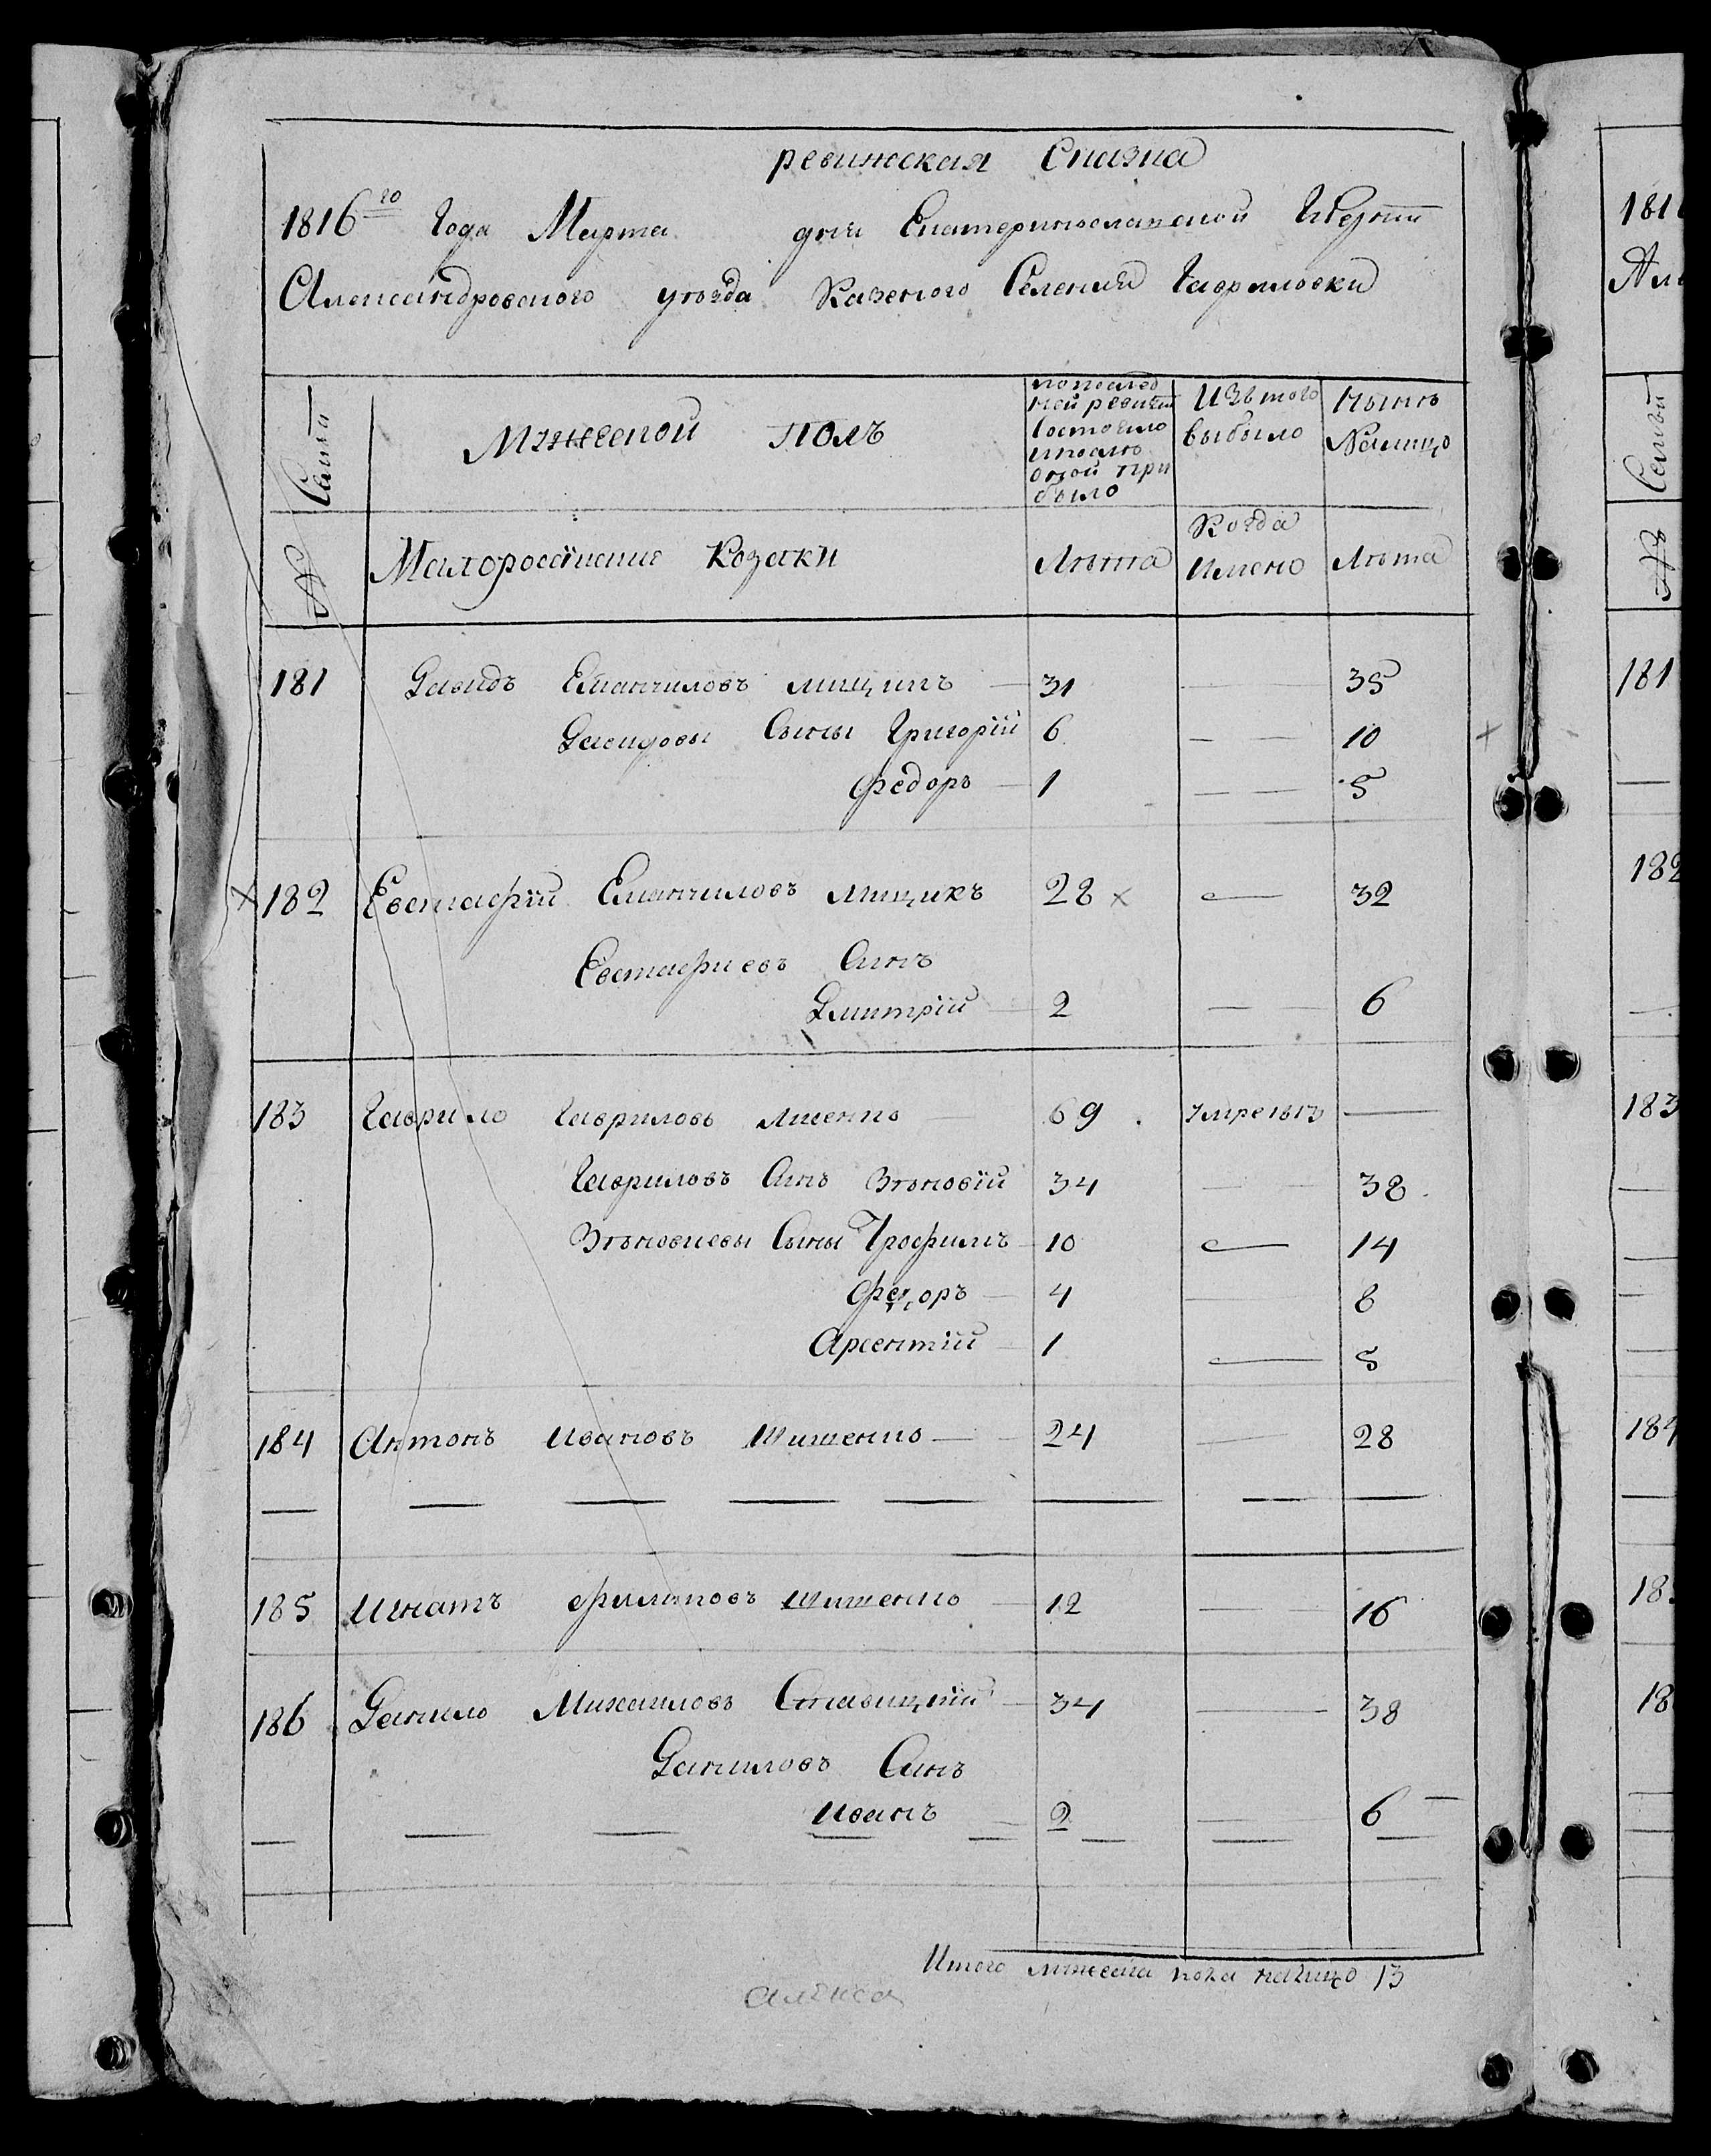 ревижская Сказка
1816го Года Марта дня Екатеринославской Губерніи
Александровского уѣзда Казеного Селения Гавриловки
Семьи
Мужеской полъ
по послед
ней ревизіи
Состояло
и после
оной при
было
Изъ того
выбыло
Нынѣ
Налицо
№
Малоросейские Козаки
Лѣта
Когда
имено
Лѣта
181 Давидъ Еманчиловъ мищикъ 31 — 35
Давидовы Сыны Григорій 6 — — 10
Федоръ 1 — — 5
182 Евстафій Еманчиловъ Мищикъ 28 — 32
Евстафиевъ Синъ
Дмитрій 2 — 6
183 Гаврило Гавриловъ Лисенко 69 умре 1813 —
Гавриловъ Синъ Зѣновій 34 — — 38
Зѣновиевы Сыны Трофимъ 10 — 14
Федоръ 4 — 8
Арсентій 1 — 5
184 Антонъ Ивановъ Шишенко 24 — 28
185 Игнатъ Филиповъ Шишенко 12 — 16
186 Данило Михаиловъ Ставицкій 34 — 38
Даниловъ Синъ
Иванъ 2 — 6
Итого мужеска пола налицо 13
1816
Але
Семьи
№
181
182
183
184
18
18